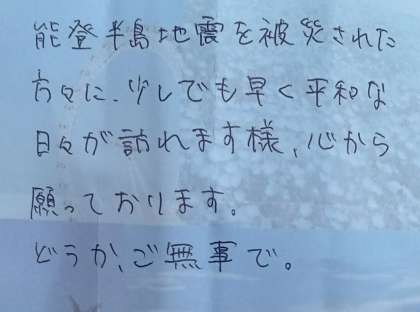 能登半島地震を被災された
方々に、少しでも早く平和な
日々が訪れます様、心から
願っております。
どうか、ご無事で。